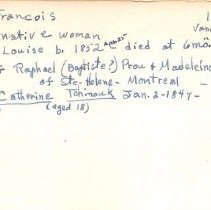 François 1
native woman Van
Louise b. 1852 apr 25 died at 6 mos
Raphael (Baptiste?) Prou & Madeleine
of Ste. Helene - Montreal -
Catherine Tchinouk Jan. 2 - 1847 -
(aged 18)